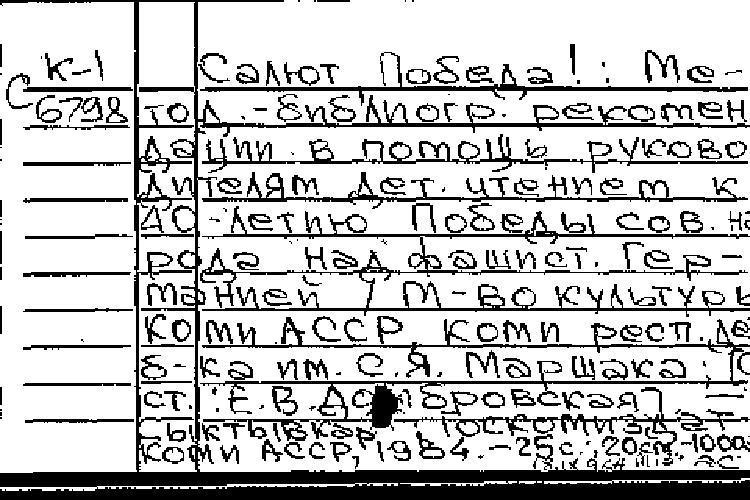 К-1 Салют Победа! : Ме-
С 6798 тод.-библиогр. рекомен
дации в помощь руково
дителям дет. чтением к
40-летию Победы сов. на
рода над фашист. Гер-
манией / М-во культуры
Коми АССР Коми респ. де
б-ка им. С.Я. Маршака; [С
ст.: Е.В. Домбровская]. —
Сыктывкар: Госкомиздат
Коми АССР, 1984.-25с.; 20см.-1000